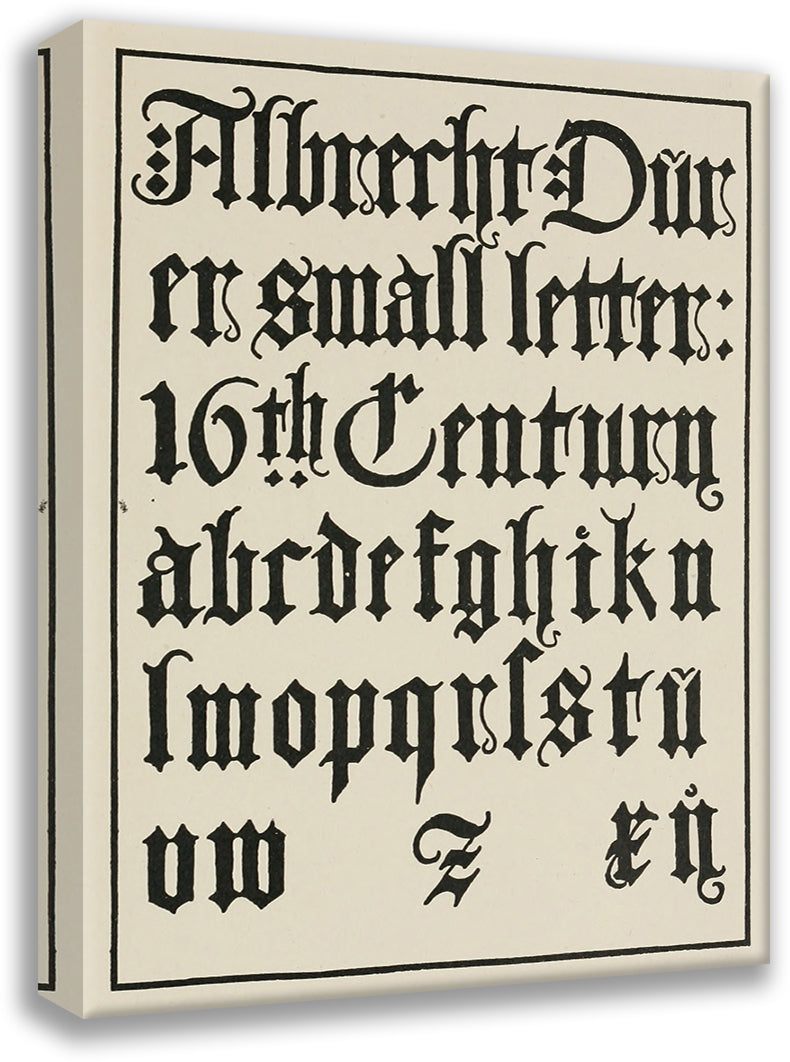 Albrecht Dür
er small letter:
16th Century
abcdefghikn
lmopqrſstu
vw z xy